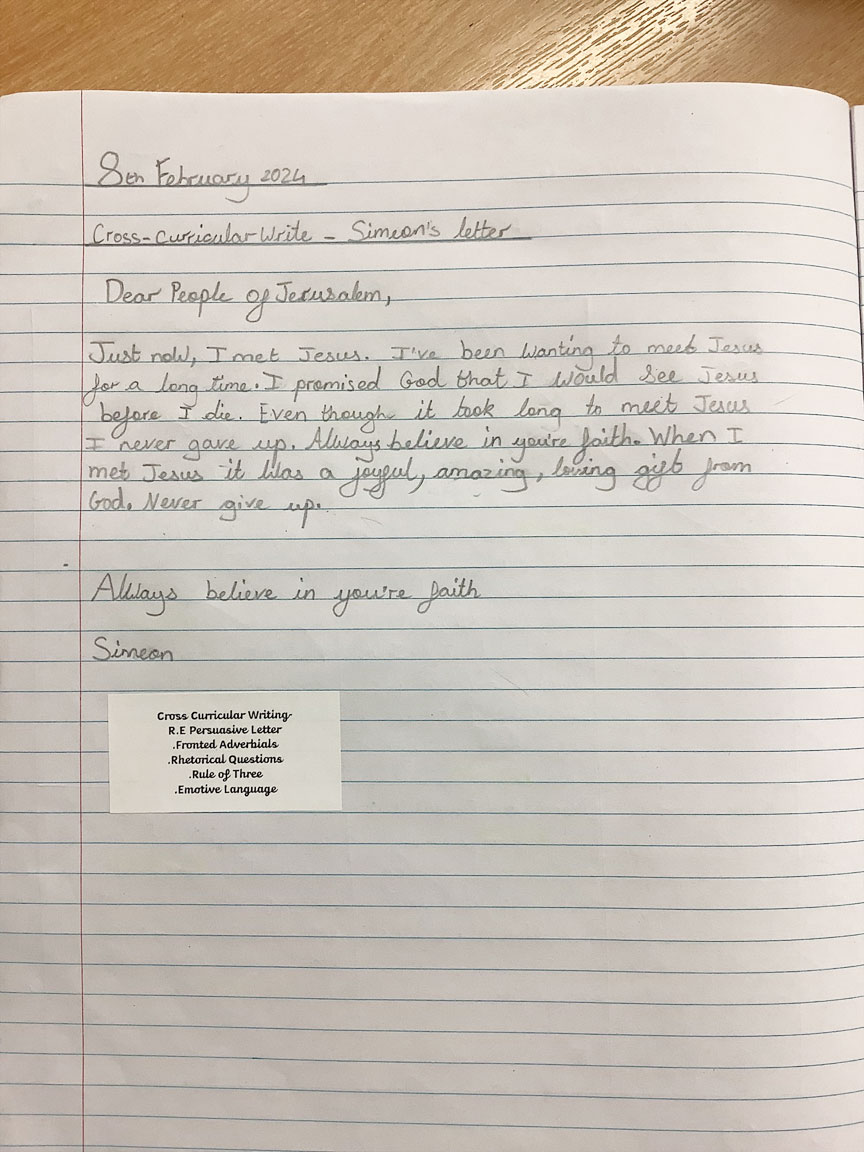 8th February 2024
Cross-Curricular Write - Simeon's letter
Dear People of Jerusalem,
Just now, I met Jesus. I've been wanting to meet Jesus
for a long time. I promised God that I would see Jesus
before I die. Even though it took long to meet Jesus
I never gave up. Always believe in you're faith. When I
met Jesus it was a joyful, amazing, loving gift from
God. Never give up.
Always believe in you're faith
Simeon
Cross Curricular Writing-
R.E Persuasive Letter
.Fronted Adverbials
.Rhetorical Questions
.Rule of Three
.Emotive Language